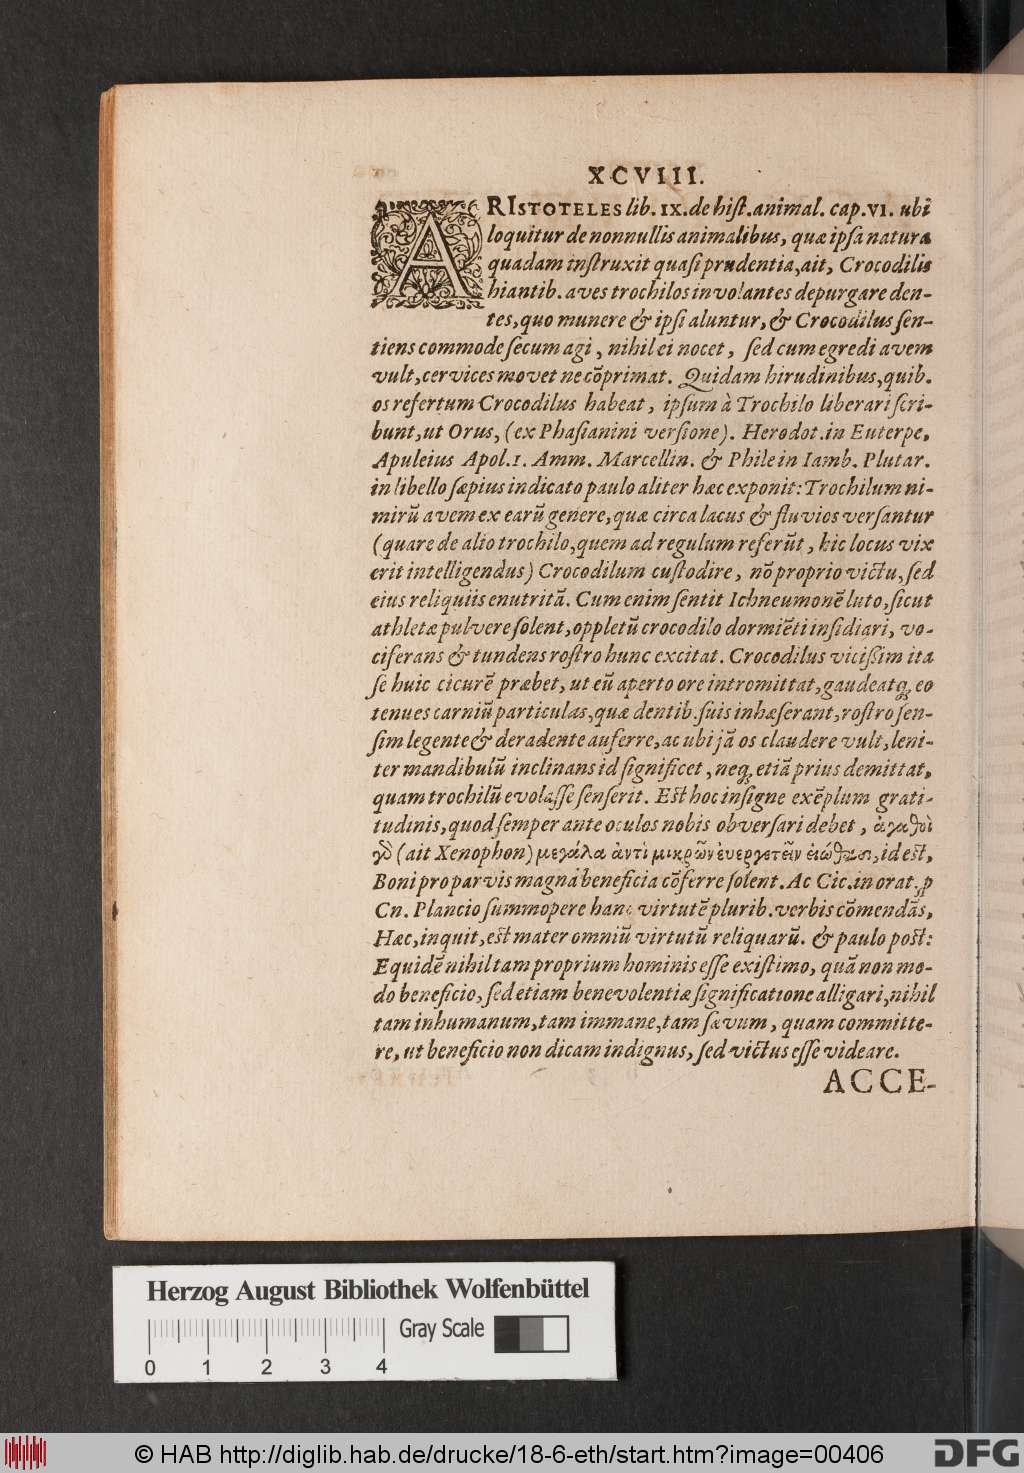 XCVIII.
ARISTOTELES lib. IX. de hiſt. animal. cap. VI. ubi
loquitur de nonnullis animalibus, quæ ipſa natura
quadam inſtruxit quaſi prudentia, ait, Crocodilis
hiantib. aves trochilos involantes depurgare den-
tes, quo munere & ipſi aluntur, & Crocodilus ſen-
tiens commode ſecum agi, nihil ei nocet, ſed cum egredi avem
vult, cervices movet ne cōprimat. Quidam hirudinibus, quib.
os refertum Crocodilus habeat, ipſum à Trochilo liberari ſcri-
bunt, ut Orus, (ex Phaſianini verſione). Herodot. in Euterpe,
Apuleius Apol. 1. Amm. Marcellin. & Phile in Iamb. Plutar.
in libello ſæpius indicato paulo aliter hæc exponit: Trochilum ni-
mirū avem ex earū genere, quæ circa lacus & fluvios verſantur
(quare de alio trochilo, quem ad regulum referūt, hic locus vix
erit intelligendus) Crocodilum cuſtodire, nō proprio victu, ſed
eius reliquiis enutritā. Cum enim ſentit Ichneumonē luto, ſicut
athletæ pulvere ſolent, oppletū crocodilo dormiēti inſidiari, vo-
ciferans & tundens roſtro hunc excitat. Crocodilus viciſſim ita
ſe huic cicurē præbet, ut eū aperto ore intromittat, gaudeatq́; eo
tenues carniū particulas, quæ dentib. ſuis inhæſerant, roſtro ſen-
ſim legente & deradente auferre, ac ubi jā os claudere vult, leni-
ter mandibulū inclinans id ſignificet, neq; etiā prius demittat,
quam trochilū evolaſſe ſenſerit. Eſt hoc inſigne exēplum grati-
tudinis, quod ſemper ante oculos nobis obverſari debet, ἀγαθοὶ
γὸ (ait Xenophon) μεγάλα ἀντὶ μικρῶν ἐυεργετεῖν ἐιώθασι, id eſt,
Boni pro parvis magna beneficia cōferre ſolent. Ac Cic. in orat. ꝓ
Cn. Plancio ſummopere hanc virtutē plurib. verbis cōmendās,
Hæc, inquit, eſt mater omniū virtutū reliquarū. & paulo poſt:
Equidē nihil tam proprium hominis eſſe exiſtimo, quā non mo-
do beneficio, ſed etiam benevolentiæ ſignificatione alligari, nihil
tam inhumanum, tam immane, tam ſævum, quam committe-
re, ut beneficio non dicam indignus, ſed victus eſſe videare.
ACCE-
Herzog August Bibliothek Wolfenbüttel
0 1 2 3 4 Gray Scale
© HAB http://diglib.hab.de/drucke/18-6-eth/start.htm?image=00406
DFG